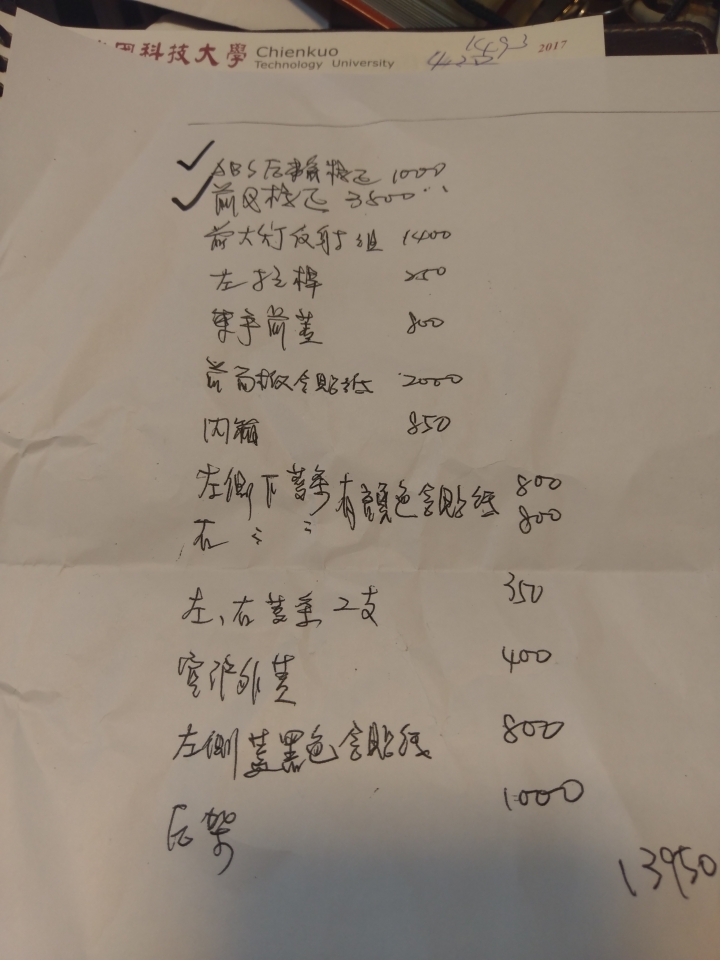 國科技大學 Chienkuo Technology University 1493 2017
ABS后輪校正 1000
前叉校正 3500
前大灯反射組 1400
左拉桿 250
車手前蓋 800
前面板含貼紙 2000
內箱 850
左側下蓋条有顏色含貼紙 800
右 〃 〃 800
左、右蓋条 2支 350
空濾外蓋 400
左側蓋黑色含貼紙 800
后架 1000
13950